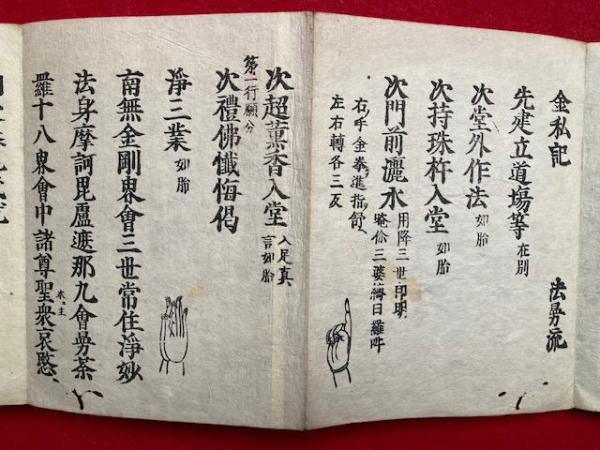 金私記　法曼流
先建立道場等 在別
次堂外作法 如胎
次持珠杵入堂 如胎
次門前灑水 用降三世印明
唵伱三婆縛日羅吽
右手金拳進指舒
左右轉各三反
次超薰香入堂 入足真
言如胎
第一行願分
次禮佛懺悔偈
淨三業 如胎
南無金剛界會三世常住淨妙
法身摩訶毘盧遮那九會曼荼
羅十八界會中諸尊聖衆哀愍